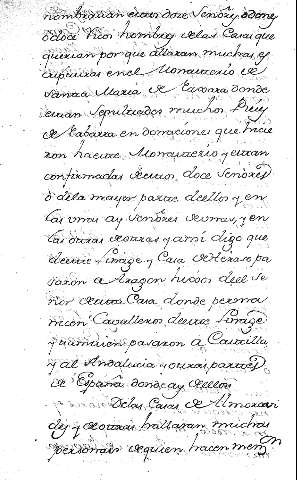 nombraban estos doze Señores, o doze
o doze Ricos hombres de las Casas que
querian por que allaran muchas es
cripturas en el Monasterio de
Santa Maria de donde
estan sepultados muchos Reies
de Nabarra en donaciones que hicie
ron ha este Monasterio y estan
confirmadas de estos doce Señores
o de la mayor parte de ellos y en
las unas ay señores de unas, y en
las otras de otras y ami digo que
de este Linage y Casa de pa
saron a Aragon hixos del Se
ñor de esta Casa donde perma
necion Cavalleros de este Linage
y tambien pasaron a Castilla
y al Andalucia y otras partes
de España donde ay de ellos
De las Casas de Almoravi
des y de otras hallaran muchas
personas de quien hacen mem